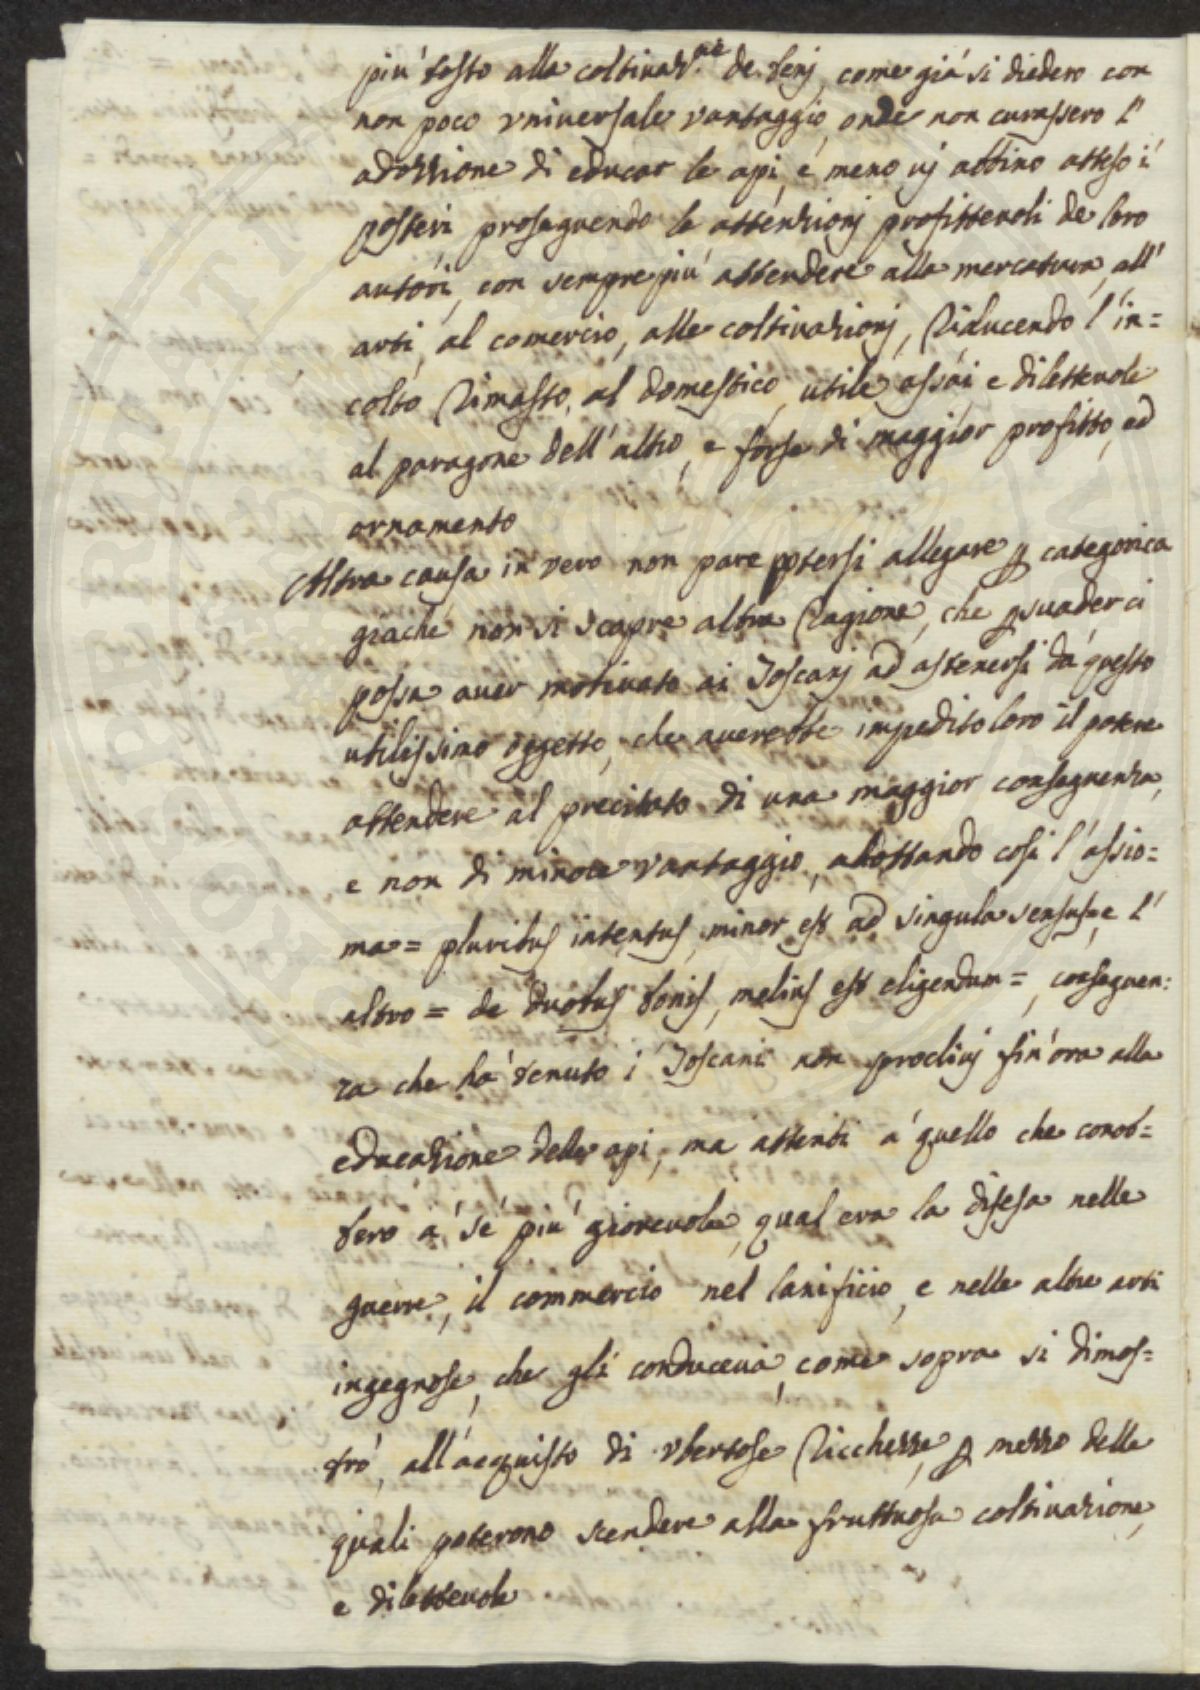 più tosto alla coltivaz.ne de beni, come già si diedero con
non poco vniversale vantaggio, onde non curassero l'
adozzione di educar le api, e meno vj abbino atteso i
posteri proseguendo le attenzionj profittevoli de loro
autori, con sempre più attendere alla mercatura, all'
arti, al comercio, alle coltivazionj, riducendo l'in=
colto rimasto, al domestico, utile assai, e dilettevole
al paragone dell'altro, e forse di maggior profitto, ed
ornamento
Altra causa in vero non pare potersi allegare ꝑ categorica
giache non si scopre altra ragione, che ꝑsuaderci
possa aver motivato ai Toscanj ad astenersi da questo
utilissimo oggetto, che averebbe impedito loro il potere
attendere al precitato di una maggior conseguenza,
e non di minore vantaggio, adottando così l'assio=
ma = pluribus intentus, minor est ad singula sensus = e l'
altro = de duobus bonis, melius est eligendum =, conseguen:
za che hà tenuto i Toscani non proclivj sin'ora alla
educazione delle api, ma attenti à quello che conob=
bero à sé più giovevole, qual era la difesa nelle
guerre, il commercio nel lanificio, e nelle altre arti
ingegnose, che gli conduceva, come sopra si dimos=
trò, all'acquisto di vbertose ricchezze, ꝑ mezzo delle
quali poterono scendere alla fruttuosa coltivazione,
e dilettevole